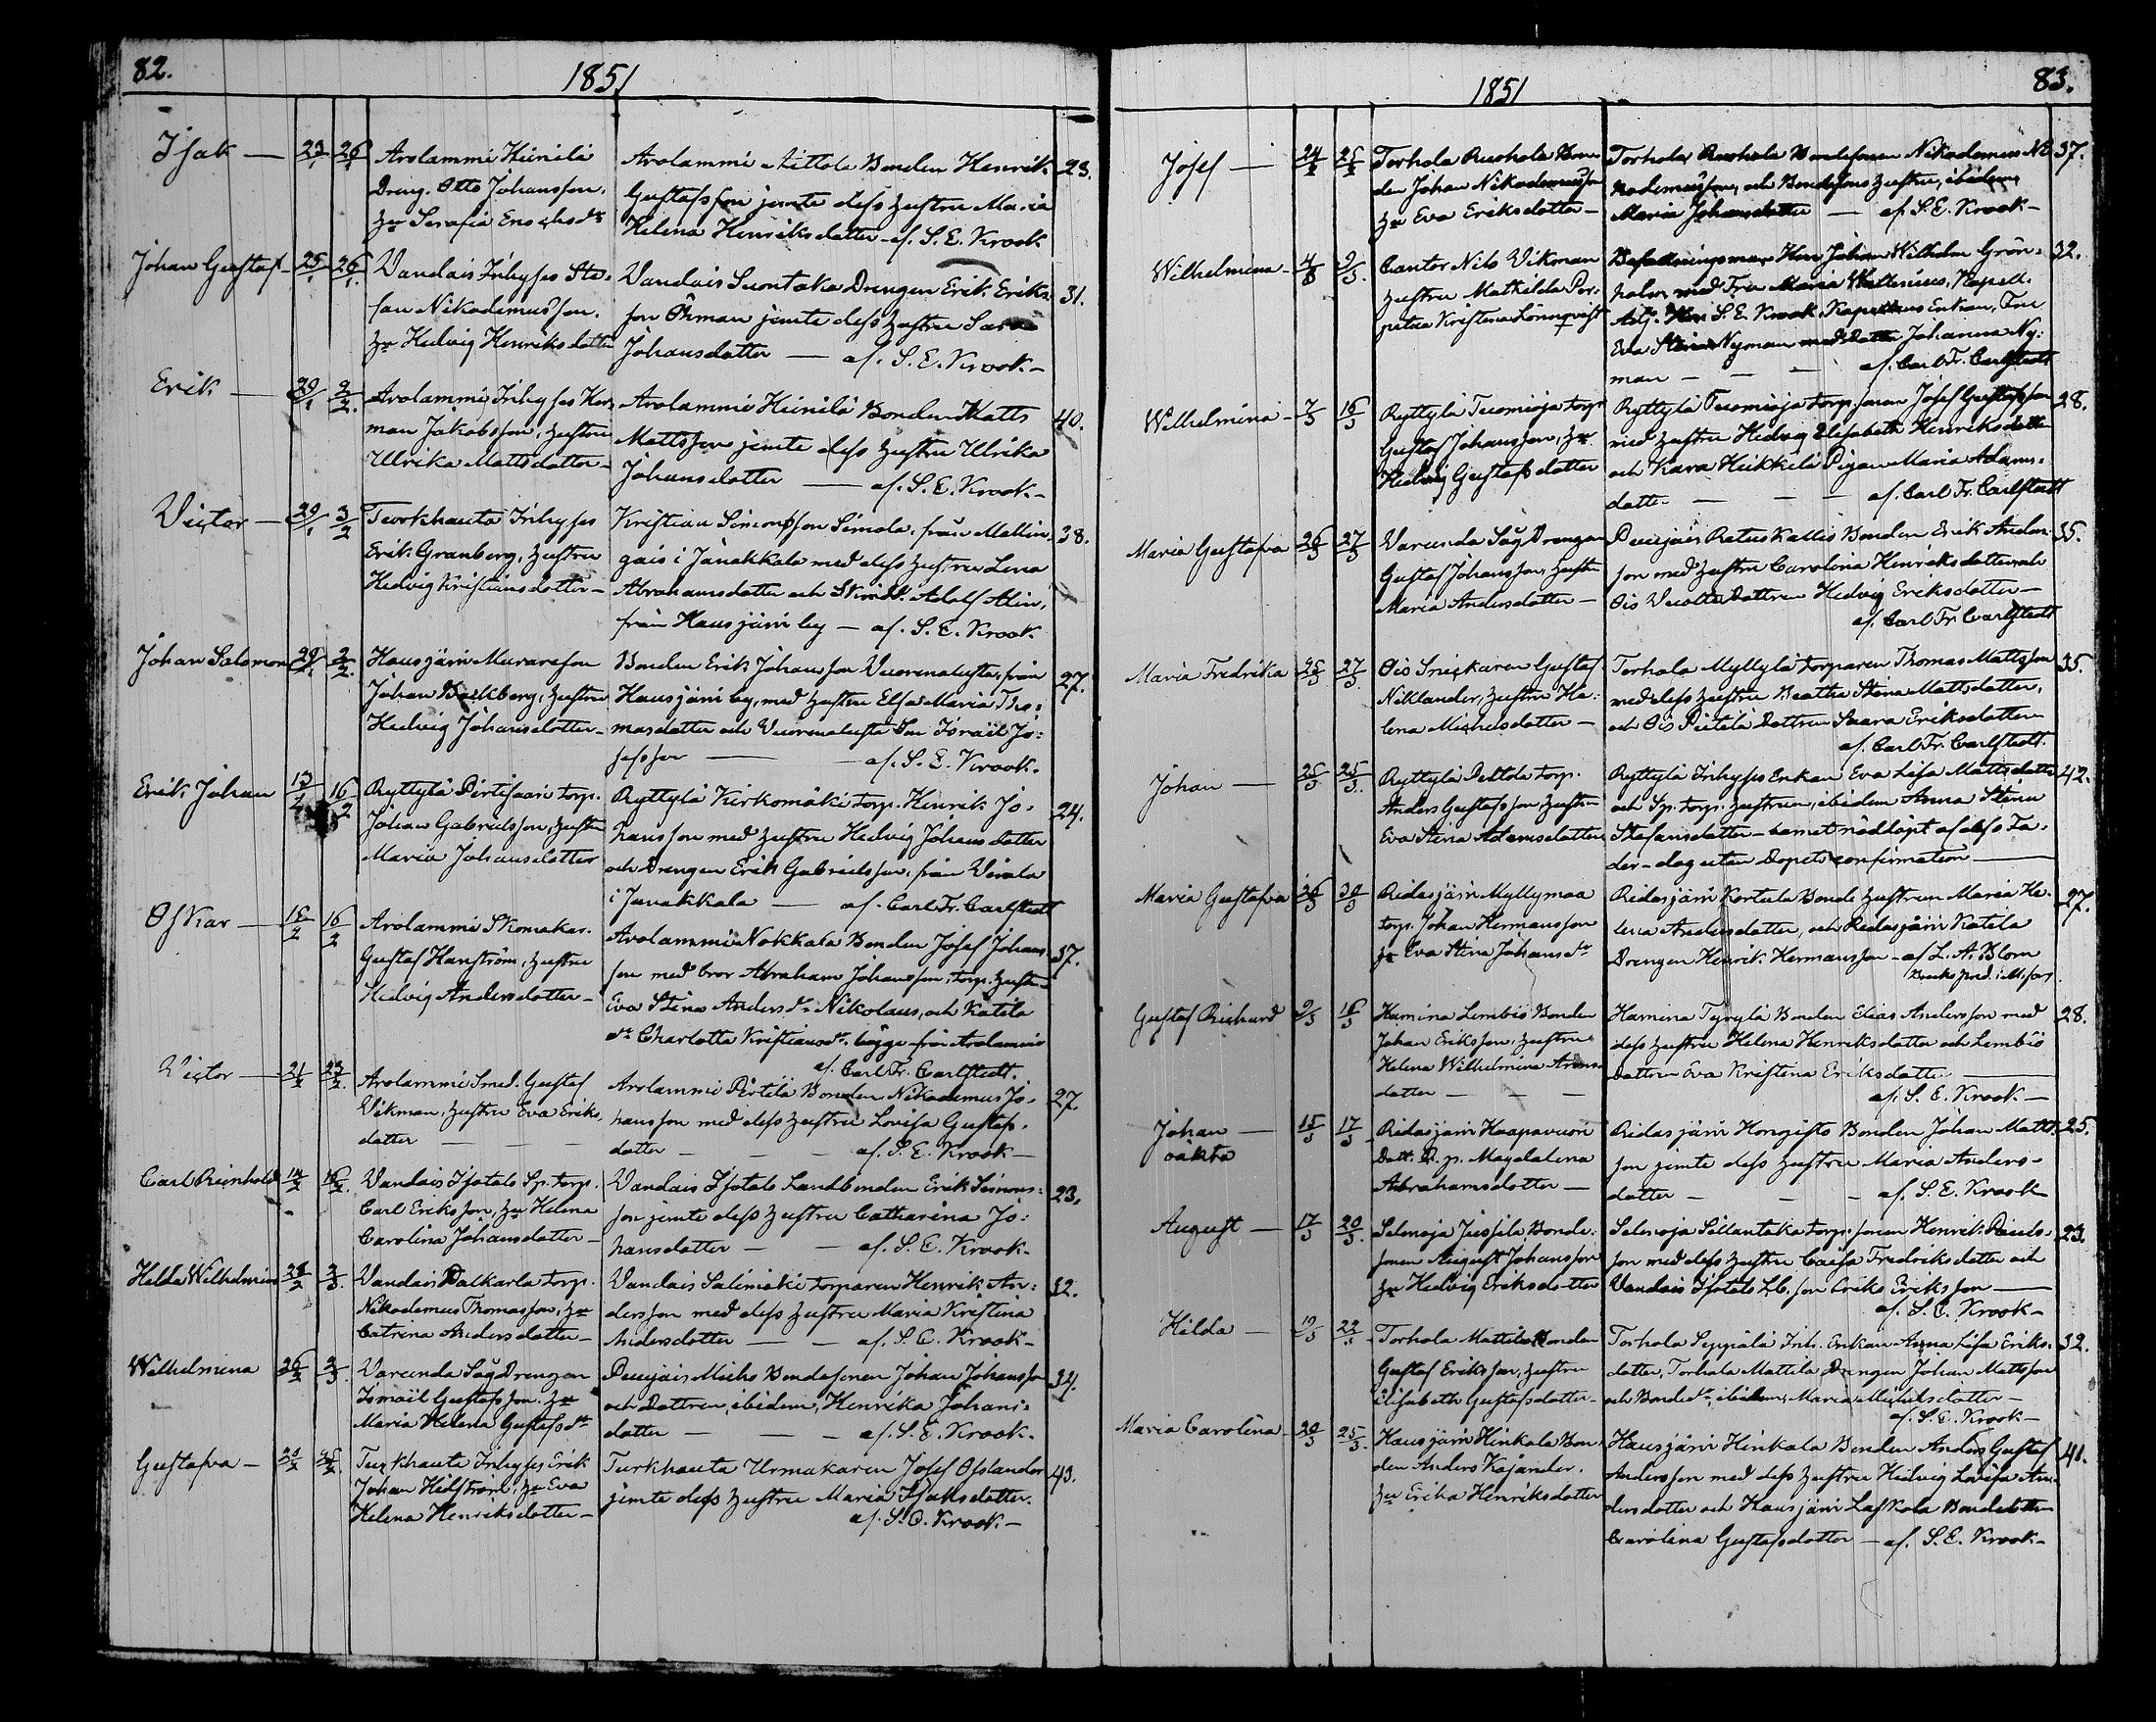 82.
1851
Isak — 23/1 26/1 Arolammi Heinilä Arolammi Aittola Bonden Henrik 23.
Dreng. Otto Johansson, Gustafsson jemte dess hustru Maria
h:u Serafia Ericsd:r Helena Henriksdotter - af. S. E. Krook
Johan Gustaf - 25/1 26/1 Vandais Inhyses Ste- Vandais Suontaka Drengen Erik Eriks- 31.
fan Nikodemusson, son Öhman jemte dess hustru Sara
h:u Hedvig Henriksdotter Johansdotter — af. S. E. Krook. -
Erik — 29/1 2/2. Arolammi Inhyses Her- Arolammi Heinilä Bonden Matts 40.
man Jakobsson, hustru Mattsson jemte dess hustru Ulrika
Ulrika Mattsdotter - Johansdotter — af. S. E. Krook -
Victor — 29/1 3/2 Turkhauta Inhyses Kristian Simonsson Simola, från Mallin- 38.
Erik Granberg, hustru gais i Janakkala med dess hustru Lena
Hedvig Kristiansdotter - Abrahamsdotter och Skrädd. Adolf Alin,
från Hausjärvi by — af. S. E. Krook.
Johan Salomon 29/1 2/2. Hausjärvi Muraresson Bonden Erik Johansson Vuorenalusta, från 27.
Johan Backberg, hustru Hausjärvi by, med hustru Elsa Maria Tho-
Hedvig Johansdotter - masdotter och Vuorenalusta Son Israël Jo-
sefsson — af. S. E. Krook.
Erik Johan 13/2 16/2 Ryttylä Pirtisaari torp. Ryttylä Kirkomäki torp. Henrik Jo- 24.
Johan Gabrielsson, hustru hansson med hustru Hedvig Johansdotter
Maria Johansdotter och Drengen Erik Gabrielsson, från Virala
i Janakkala — af. Carl Fr. Carlstedt
Oskar — 15/2 16/2 Arolammi Skomakar. Arolammi Nokkala Bonden Josef Johans- 37.
Gustaf Hanström, hustru son med bror Abraham Johansson, torp. hustr.
Hedvig Andersdotter - Eva Stina Andersd:r Nikolaus, och Katila
d:r Charlotta Kristiansd:r, bägge från Arolammi
af. Carl Fr. Carlstedt.
Victor — 21/2 23/2. Arolammi Smed. Gustaf Arolammi Pertilä Bonden Nikodemus Jo- 27.
Wikman, hustru Eva Eriks- hansson med dess hustru Lovisa Gustafs-
dotter — dotter — af. S. E. Krook —
Carl Reinhold 14/2 16/2. Vandais Isotalo Sp. torp. Vandais Isotalo Landbonden Erik Simons- 23.
Carl Eriksson, h:u Helena son jemte dess hustru Catharina Jo-
Carolina Johansdotter - hansdotter — af. S. E. Krook -
Hilda Wilhelmina 28/2 2/3. Vandais Dalkarla torp. Vandais Salimäki torparen Henrik An- 32.
Nikodemus Thomasson, h:u dersson med dess hustru Maria Kristina
Catrina Andersdotter - Andersdotter — af. S. E. Krook -
Wilhelmina 26/2 2/3. Varunda Såg Drengen Puujais Micko Bondesonen Johan Johansson 34.
Ismaël Gustafsson, h:u och Dottren, ibidem, Henrika Johans-
Maria Helena Gustafsd:r dotter — af. S. E. Krook.
Gustafva — Turkhauta Inhyses Erik Turkhauta Urmakaren Josef Oslander 43.
Johan Hellström, h:u Eva jemte dess hustru Maria Isaksdotter.
Helena Henriksdotter - af. S. E. Krook -
1851
83.
Josef — 24/2 25/2 Torhola Ruohola Bon- Torhola Ruohola Bondesonen Nikodemus Ni- 37.
den Johan Nikodemusson kodemusson, och Bondesons hustru, ibidem,
h:u Eva Eriksdotter - Maria Johansdotter — af. S. E. Krook -
Wilhelmina - 4/3 9/3. Cantor Nils Vikman Befallningsman Herr Johan Wilhelm Grön- 32.
hustru Mathilda Per- holm med Fru Maria Wallenius, Kapell.
petua Kristina Lönnqvist Adj. Herr S. E. Krook, Kapellans Enkan, Fru
Eva Stina Nyman med Dotter Johanna Ny-
man — af. Carl Fr. Carlstedt
Wilhelmina - 7/3 16/3 Ryttylä Tuomioja torp. Ryttylä Tuomioja torp. sonen Josef Gustafsson 28.
Gustaf Johansson, h:u med hustru Hedvig Elisabeth Henriksdotter
Hedvig Gustafsdotter och Kara Heikkilä Pigan Maria Adams-
dotter — af. Carl Fr. Carlstedt
Maria Gustafva 26/3 27/3 Varunda Såg Drengen Puujais Ratus Kallis Bonden Erik Anders- 35.
Gustaf Johansson, hustru son med hustru Carolina Henriksdotter och
Maria Andersdotter - Ois Uuotti Dottren Hedvig Eriksdotter -
af. Carl Fr. Carlstedt
Maria Fredrika 25/3 27/3. Ois Snickaren Gustaf Torhola Myllylä torparen Thomas Mattsson 35.
Niklander, hustru He- med dess hustru Beatha Stina Mattsdotter,
lena Michelsdotter - och Ois Pietilä Dottren Saara Eriksdotter
af. Carl Fr. Carlstedt.
Johan — 25/3 25/3. Ryttylä Peltola torp. Ryttylä Inhyses Enkan Eva Lisa Mattsdotter 42.
Anders Gustafsson, hustru och Sp. torp. hustrun, ibidem Anna Stina
Eva Stina Adamsdotter Stefansdotter - barnet nöddöpt af dess Fa-
der - dog utan Dopets confirmation —
Maria Gustafva 26/3 30/3 Ridasjärvi Myllymaa Ridasjärvi Kortula Bonde hustrun Maria He- 27.
torp. Johan Hermansson lena Andersdotter, och Ridasjärvi Katila
h:u Eva Stina Johansd:r Drengen Henrik Hermansson - af L. A. Blom
Gustaf Richard 9/3 16/3 Hamina Lembiö Bonden Hamina Tyrylä Bonden Elias Andersson med 28.
Johan Eriksson, hustru dess hustru Helena Henriksdotter och Lembiö
Helena Wilhelmina Dottren Eva Kristina Eriksdotter —
dotter — af. S. E. Krook —
Johan — 15/3 17/3 Ridasjärvi Haapavuori Ridasjärvi Hongisto Bonden Johan Matts- 25.
oäkta Dott. Magdalena son jemte dess hustru Maria Anders-
Abrahamsdotter — dotter — af. S. E. Krook
August — 17/3 20/3. Selenoja Jussila Bonde- Selenoja Sillantaka torp. sonen Henrik Pauls- 23.
sonen August Johansson son med dess hustru Caisa Fredriksdotter och
h:u Hedvig Eriksdotter Vandais Isotalo Lb. son Eriks Eriksson —
af. S. E. Krook -
Hilda — 19/3 22/3 Torhola Mattila Bonden Torhola Seppälä Inh. Enkan Anna Lisa Eriks- 32.
Gustaf Eriksson, hustru dotter, Torhola Mattila Drengen Johan Mattsson
Elisabeth Gustafsdotter - och Bonded:r, ibidem, Maria Michelsdotter -
af. S. E. Krook -
Maria Carolina - 20/3 25/3. Hausjärvi Hinkala Bon- Hausjärvi Hinkala Bonden Anders Gustaf 41.
den Anders Kajander, Andersson med dess hustru Hedvig Lovisa An-
h:u Erika Henriksdotter dersdotter och Hausjärvi Laskola Bondedotter
Carolina Gustafsdotter — af. S. E. Krook -